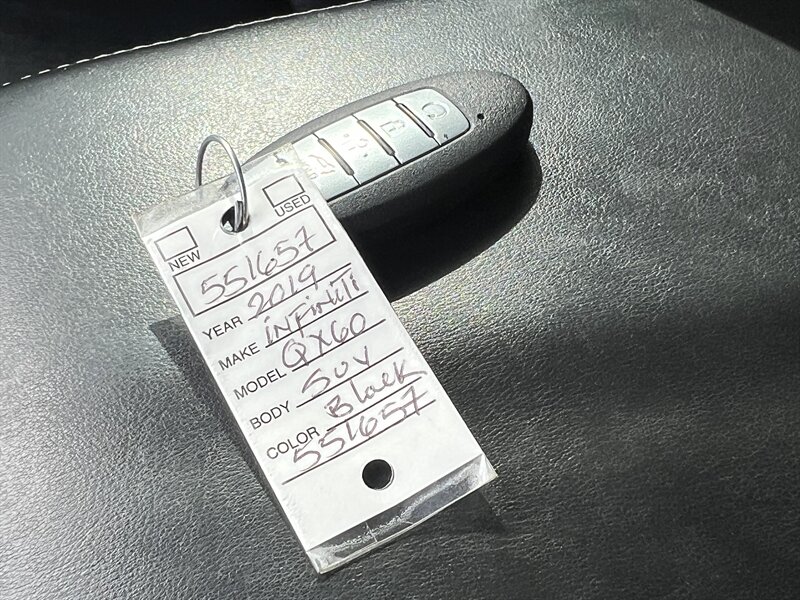 USED
NEW
551657
YEAR 2019
MAKE INFINITI
MODEL QX60
BODY SUV
COLOR Black
551657